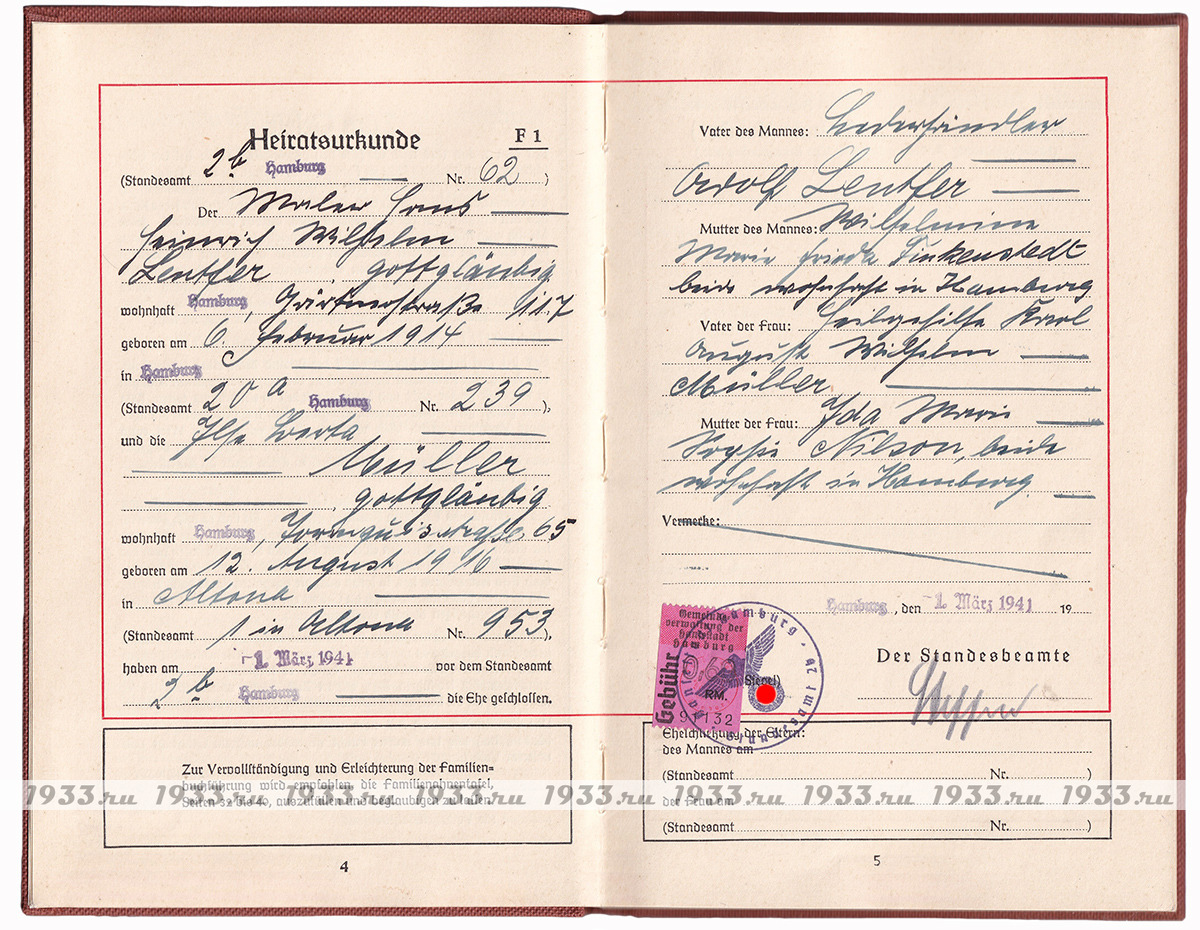 Heiratsurkunde F 1
(Standesamt 2b Hamburg Nr. 62 )
Der Maler Hans
Heinrich Wilhelm
Lentfer, gottgläubig
wohnhaft Hamburg, Gärtnerstraße 117
geboren am 6. Februar 1914
in Hamburg
(Standesamt 20a Hamburg Nr. 239 ),
und die Ilse Berta
Müller
, gottgläubig
wohnhaft Hamburg, 65
geboren am 12. August 1916
in Altona
(Standesamt 1 in Altona Nr. 953 ),
haben am -1. März 1941 vor dem Standesamt
2b Hamburg die Ehe geschlossen.
Zur Vervollständigung und Erleichterung der Familien=
buchführung wird empfohlen, die Familienahnentafel,
Seiten 32 bis 40, auszufüllen und beglaubigen zu lassen.
4
Vater des Mannes: Lederhändler
Adolf Lentfer
Mutter des Mannes: Wilhelmine
Marie Frieda Finkenstedt
beide wohnhaft in Hamburg
Vater der Frau: Heilgehilfe Karl
August Wilhelm
Müller
Mutter der Frau: Ida Marie
Sophie Nilson, beide
wohnhaft in Hamburg.
Vermerke:
Hamburg, den -1. März 1941 19
Der Standesbeamte
(Siegel)
Gemeinde
verwaltung der
Hansestadt
Hamburg
Gebühr
0,60
RM.
Eheschließung der Eltern:
des Mannes am
(Standesamt Nr. )
der Frau am
(Standesamt Nr. )
5
1933.ru 1933.ru 1933.ru 1933.ru 1933.ru 1933.ru 1933.ru 1933.ru 1933.ru